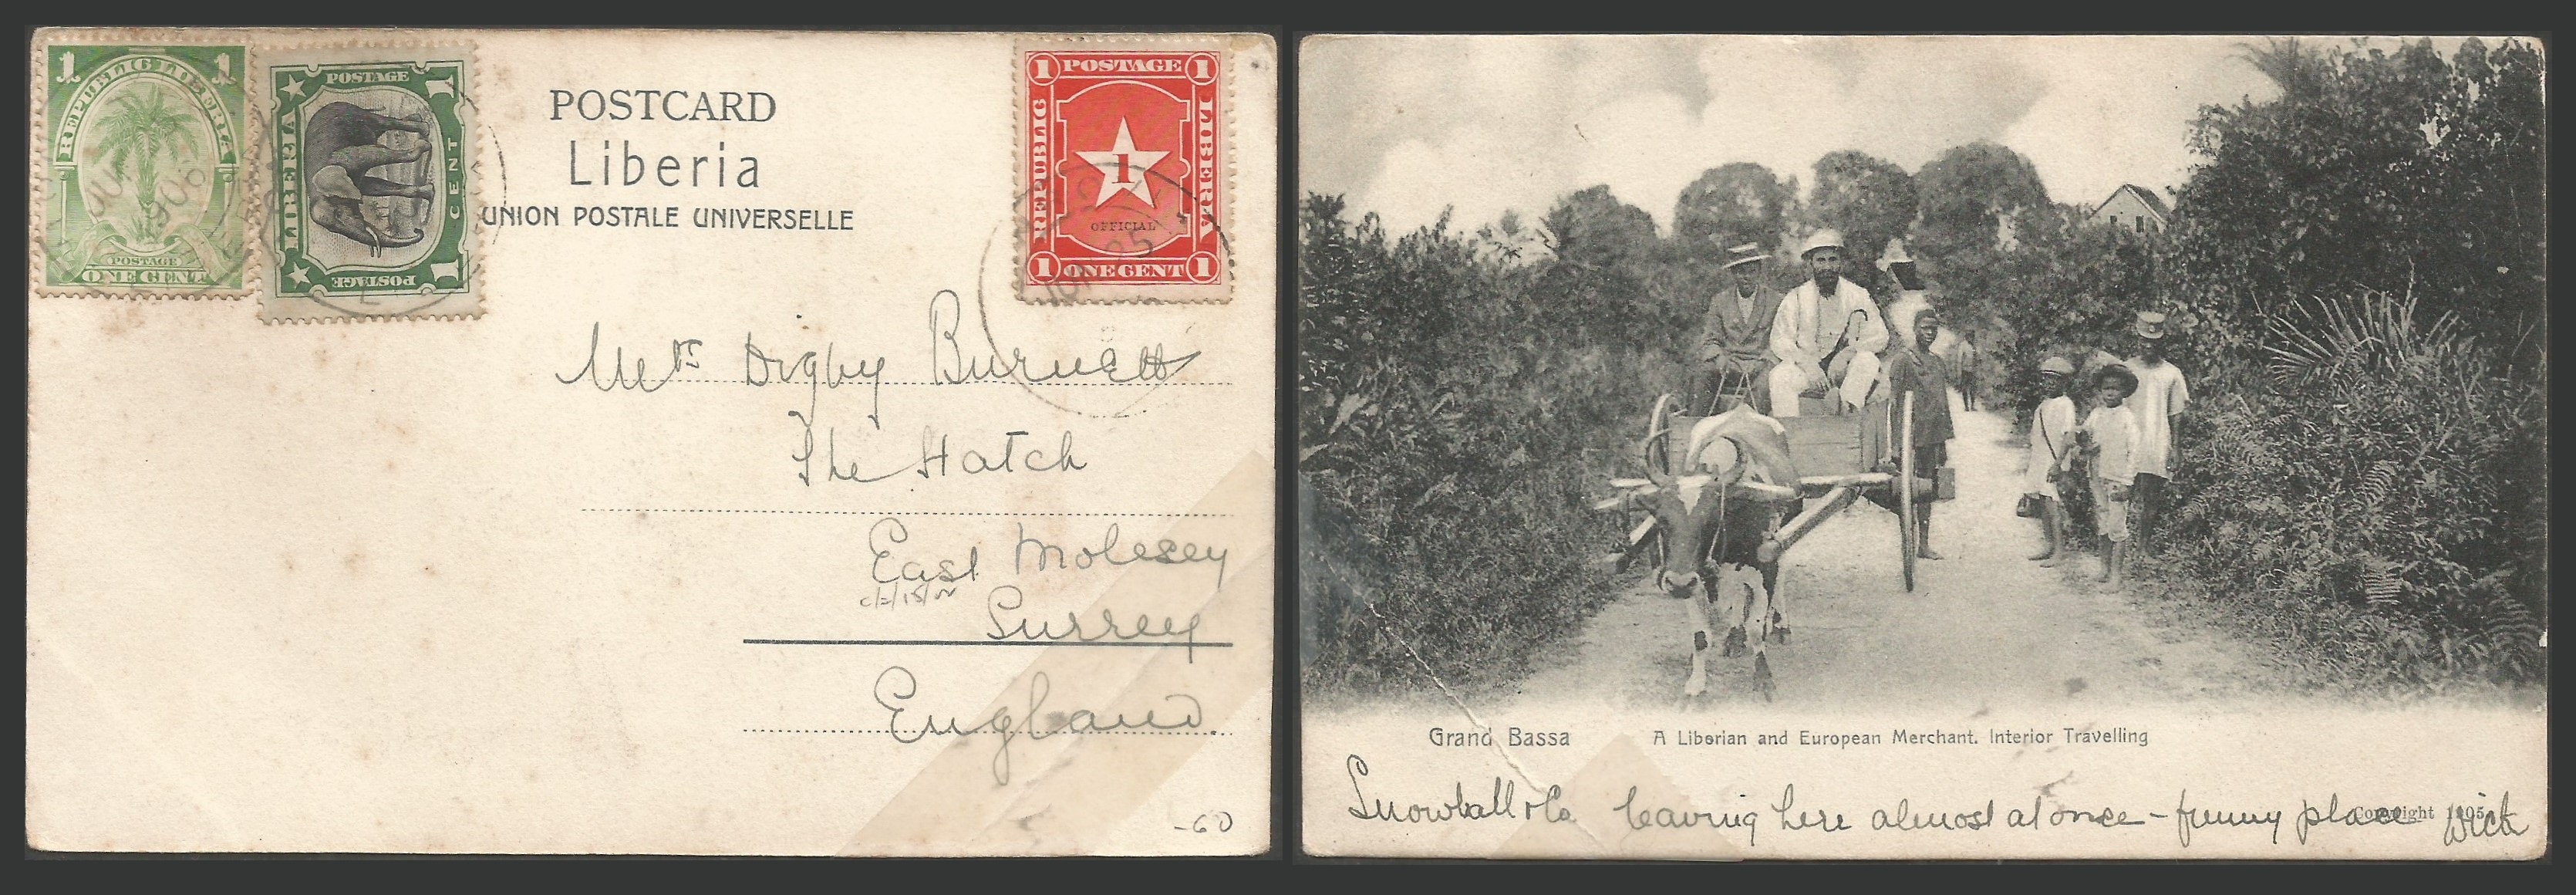 1 1
REPUBLIC LIBERIA
JUN 1906
POSTAGE
ONE CENT
POSTAGE
LIBERIA
1 CENT 1
POSTAGE
POSTCARD
Liberia
UNION POSTALE UNIVERSELLE
1 POSTAGE 1
REPUBLIC LIBERIA
1
OFFICIAL
1 ONE CENT 1
Mrs Digby Burnett
The Hatch
East Molesey
Surrey
England
-60
Grand Bassa A Liberian and European Merchant. Interior Travelling
Snowball & Co leaving here almost at once - funny place
Copyright 1905